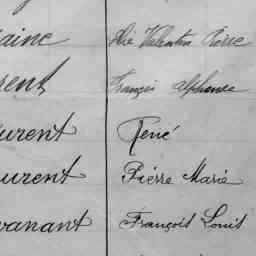 aine Elie Valentin Pierre
rent François Alphonse
urent René
urent Pierre Marie
vanant François Louis